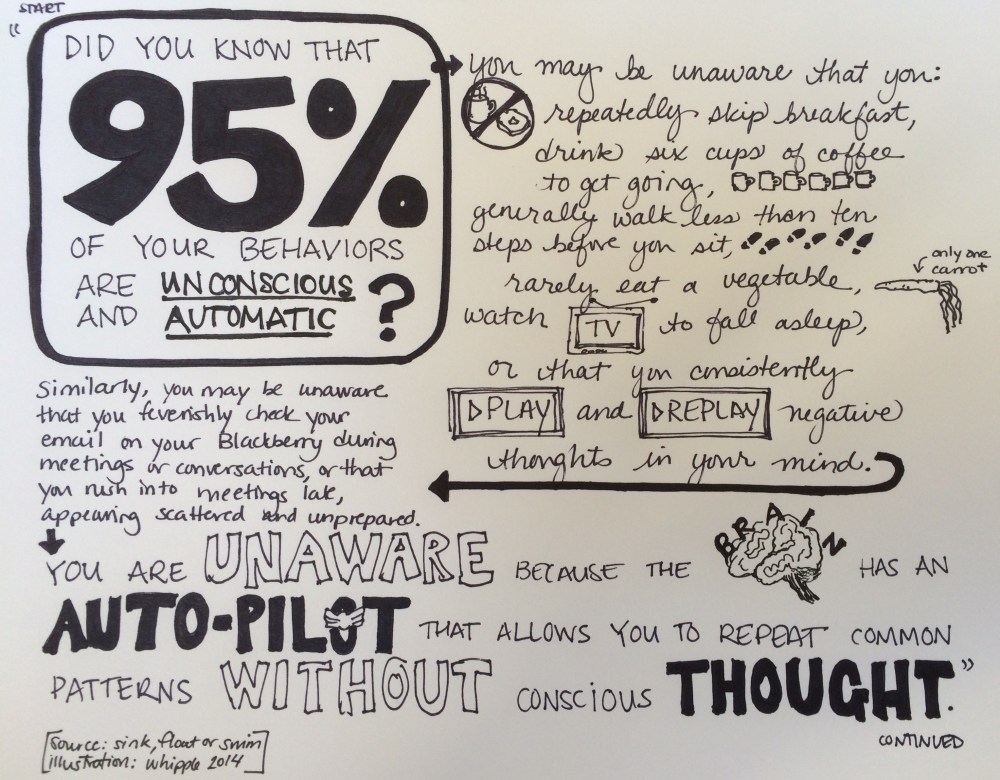 START
"
DID YOU KNOW THAT
95%
OF YOUR BEHAVIORS
ARE UNCONSCIOUS
AND AUTOMATIC ?
you may be unaware that you:
repeatedly skip breakfast,
drink six cups of coffee
to get going,
generally walk less than ten
steps before you sit,
only one
carrot
rarely eat a vegetable,
watch TV to fall asleep,
or that you consistently
PLAY and REPLAY negative
thoughts in your mind.
Similarly, you may be unaware
that you feverishly check your
email on your Blackberry during
meetings or conversations, or that
you rush into meetings late,
appearing scattered and unprepared.
YOU ARE UNAWARE BECAUSE THE BRAIN HAS AN
AUTO-PILOT THAT ALLOWS YOU TO REPEAT COMMON
PATTERNS WITHOUT CONSCIOUS THOUGHT."
CONTINUED
[source: sink, float or swim
illustration: whipple 2014]